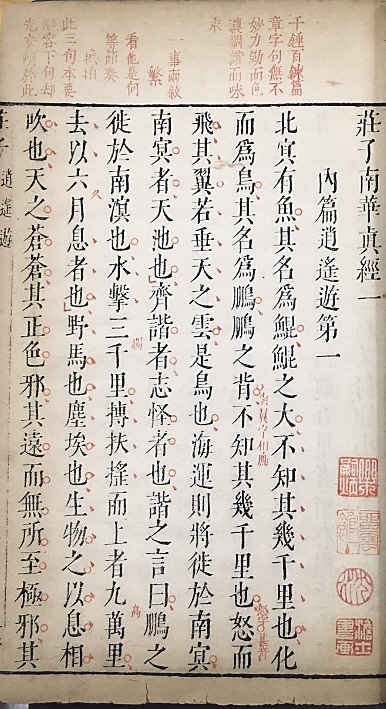 莊子南華眞經一
內篇逍遙遊第一
北冥有魚其名爲鯤鯤之大不知其幾千里也化
而爲鳥其名爲鵬鵬之背不知其幾千里也怒而
飛其翼若垂天之雲是鳥也海運則將徙於南冥
南冥者天池也齊諧者志怪者也諧之言曰鵬之
徙於南溟也水擊三千里摶扶搖而上者九萬里
去以六月息者也野馬也塵埃也生物之以息相
吹也天之蒼蒼其正色邪其遠而無所至極邪其
千錘百鍊篇
章字句無不
妙力勁而色
濃調諧而味
一事兩敘
看他是何
等節奏
此三句本要
逍遙遊